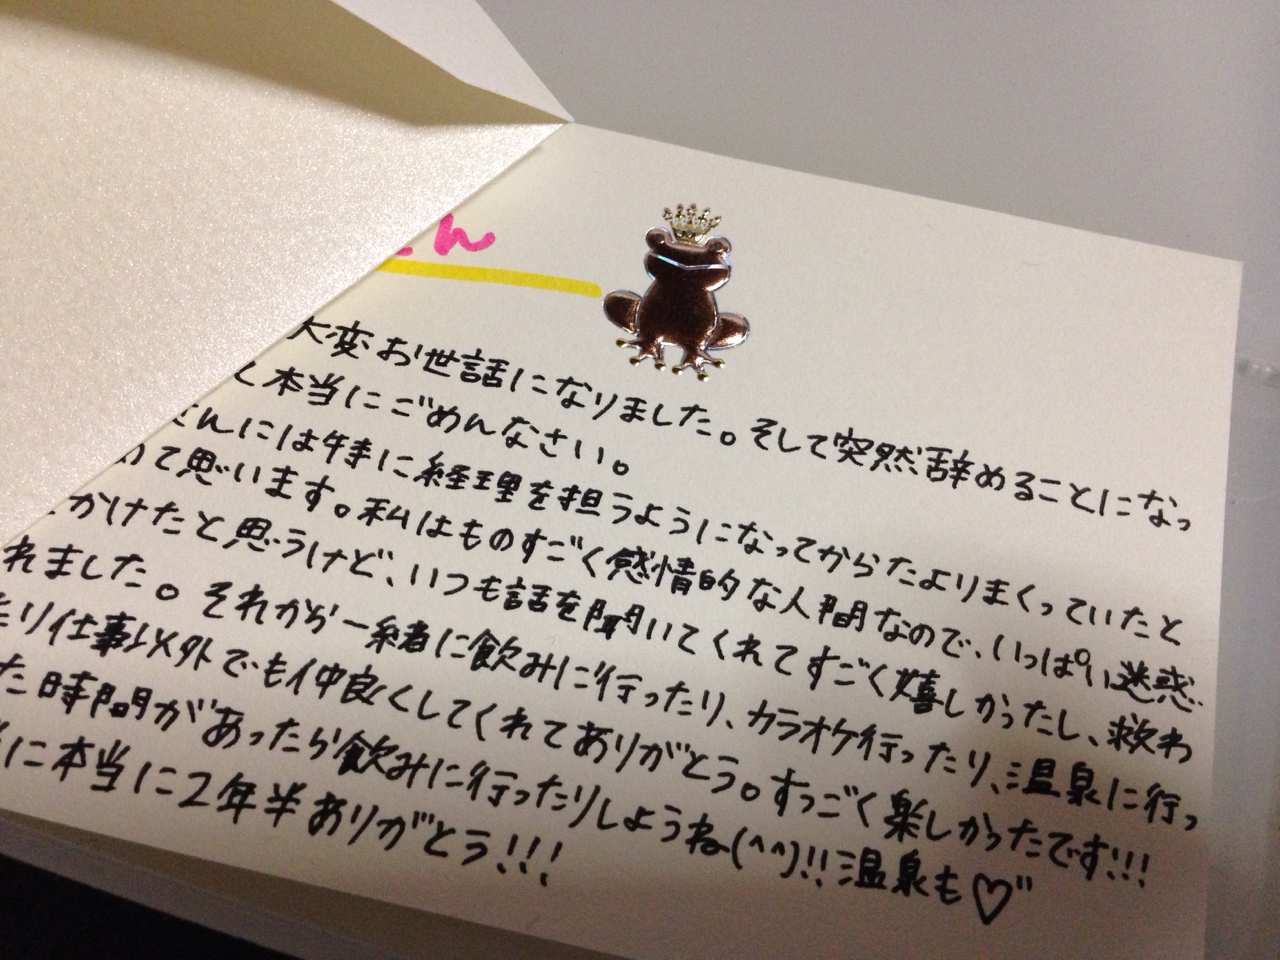 ん
大変お世話になりました。そして突然辞めることになっ
本当にごめんなさい。
さんには特に経理を担うようになってからたよりまくっていたと
めて思います。私はものすごく感情的な人間なので、いっぱい迷惑
かけたと思うけど、いつも話を聞いてくれてすごく嬉しかったし、救わ
れました。それから一緒に飲みに行ったり、カラオケ行ったり、温泉に行っ
たり仕事以外でも仲良くしてくれてありがとう。すっごく楽しかったです!!!
た時間があったら飲みに行ったりしようね(^^)!!温泉も♡"
に本当に2年半ありがとう!!!